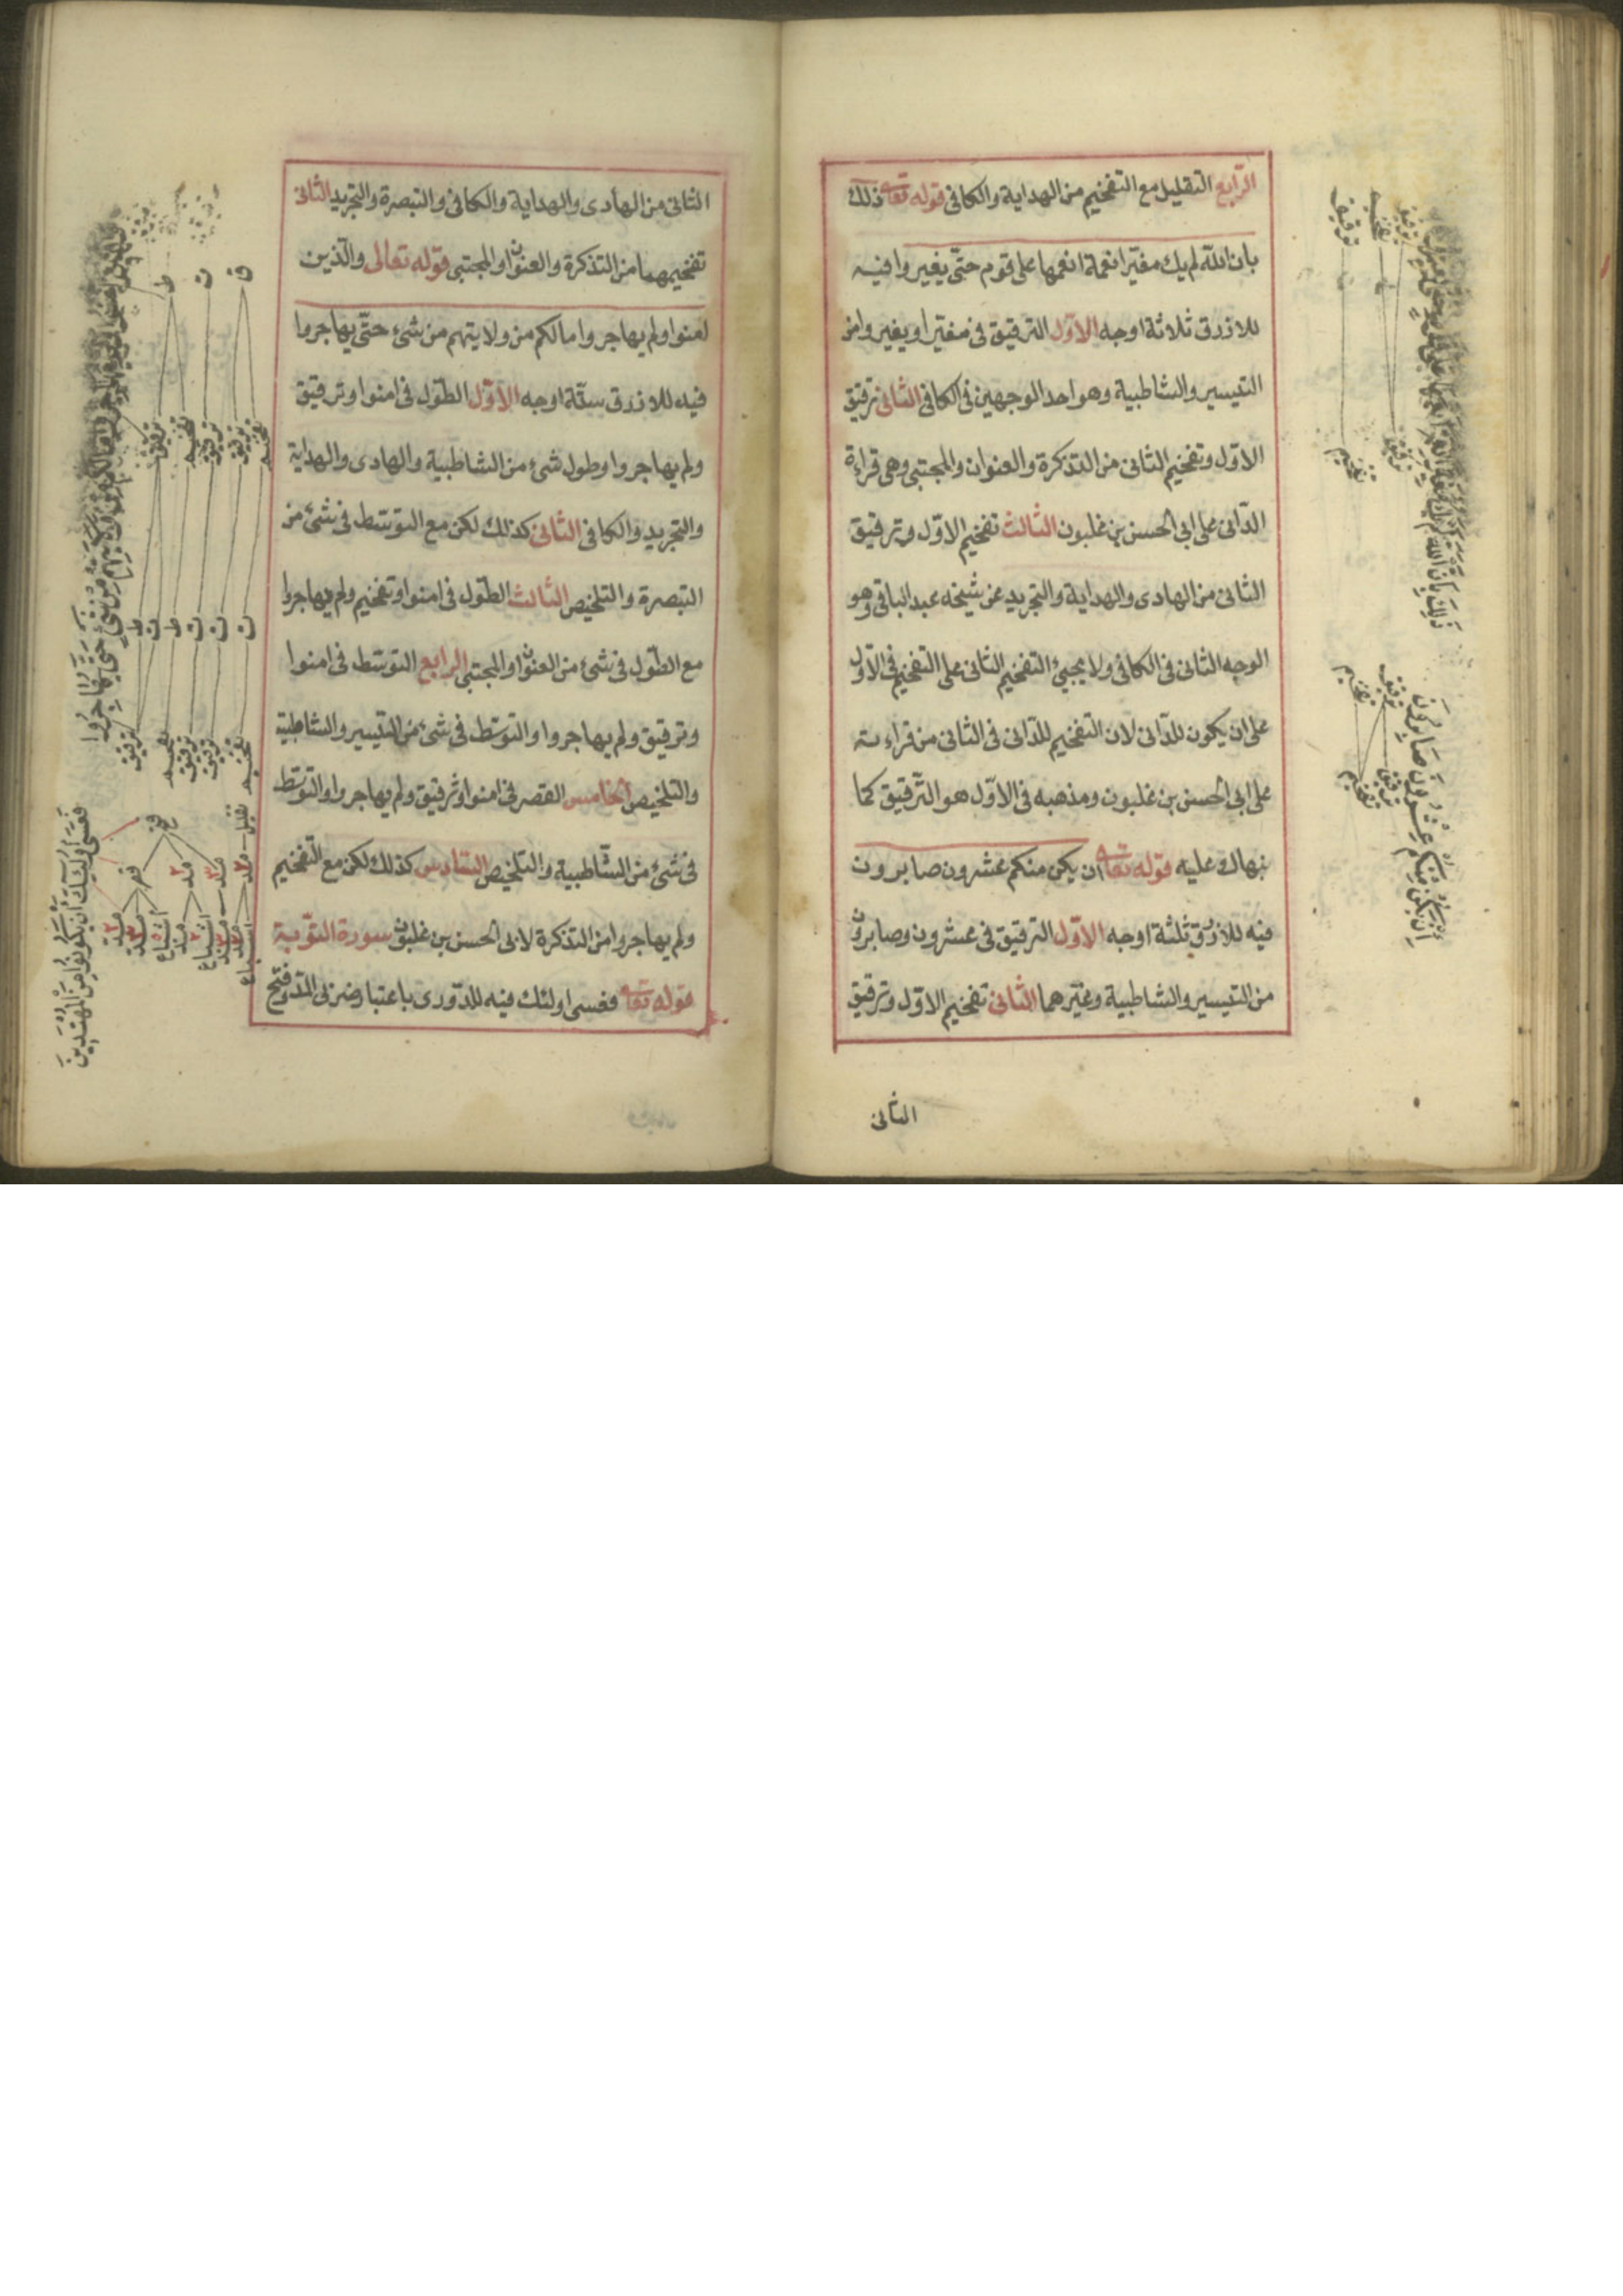 الرّابع التقليل مع التفخيم من الهداية والكافى قوله تعا ذلك
بان الله لم يك مغيّرا نعمة انعمها على قوم حتّى يغيروا فيه
للازرق ثلاثة اوجه الاوّل الترقيق فى مغيّرا ويغيروا من
التيسير والشاطبية وهو احد الوجهين فى الكافى الثانى ترقيق
الاوّل وتفخيم الثانى من التذكرة والعنوان والمجتبى وهى قراءة
الدّانى على ابى الحسن بن غلبون الثالث تفخيم الاوّل وترقيق
الثانى من الهادى والهداية والتجريد عن شيخه عبد الباقى وهو
الوجه الثانى فى الكافى ولا يجيئ التفخيم الثانى على التفخيم فى الاوّل
على ان يكون للدّانى لان التفخيم للدّانى فى الثانى من قراءته
على ابى الحسن بن غلبون ومذهبه فى الاوّل هو الترقيق كما
نبهاك عليه قوله تعا ان يكن منكم عشرون صابرون
فيه للازرق ثلثة اوجه الاوّل الترقيق فى عشرون وصابرون
من التيسير والشاطبية وغيرهما الثانى تفخيم الاوّل وترقيق
الثانى
ذَلِكَ بِاَنَّ اللّٰهَ لَمْ
ترقيق
تفخيم
ترقيق
ترقيق
تفخيم
اِنْ يَكُنْ مِنْكُمْ عِشْرُونَ صَابِرُونَ
ترقيق
تفخيم
ترقيق
تفخيم
الثانى من الهادى والهداية والكافى والتبصرة والتجريد الثانى
تفخيمهما من التذكرة والعنوان والمجتبى قوله تعالى والّذين
امنوا ولم يهاجروا مالكم من ولايتهم من شئ حتّى يهاجروا
فيه للازرق ستّة اوجه الاوّل الطّول فى امنوا وترقيق
ولم يهاجروا وطول شئ من الشاطبية والهادى والهداية
والتجريد والكافى الثانى كذلك لكن مع التوسّط فى شئ من
التبصرة والتلخيص الثالث الطّول فى امنوا وتفخيم ولم يهاجروا
مع الطّول فى شئ من العنوان والمجتبى الرابع التوسّط فى امنوا
وترقيق ولم يهاجروا والتوسّط فى شئ من التيسير والشاطبية
والتلخيص الخامس القصر فى امنوا وترقيق ولم يهاجروا والتوسّط
فى شئ من الشّاطبية والتلخيص السّادس كذلك لكن مع التفخيم
ولم يهاجروا من التذكرة لابى الحسن بن غلبون سورة التّوبة
قوله تعا فعسى اولئك فيه للدّورى باعتبار ضربى المدّ وفتح
مِنْ شَئٍ حَتَّى يُهَاجِرُوا
ق
ت
ط
ترقيق
تفخيم
ترقيق
ترقيق
تفخيم
ط
ت
ط
ت
ت
ت
ترقيق
تفخيم
ترقيق
ترقيق
تفخيم
فَعَسَى اُولَئِكَ اَنْ يَكُونُوا مِنَ الْمُهْتَدِينَ
فتح
تقليل
قصر
مد ٢
مد ٣
مد ٢